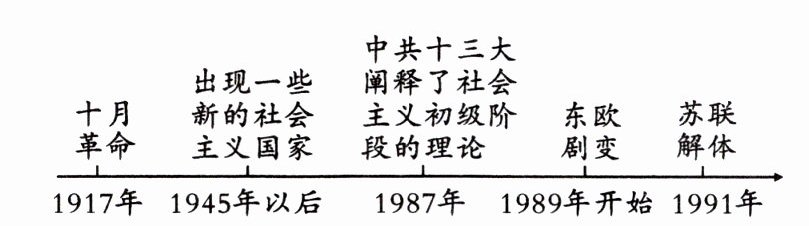 十月
革命
出现一些
新的社会
主义国家
中共十三大
阐释了社会
主义初级阶
段的理论
东欧
剧变
苏联
解体
1917年
1945年以后
1987年
1989年开始
1991年